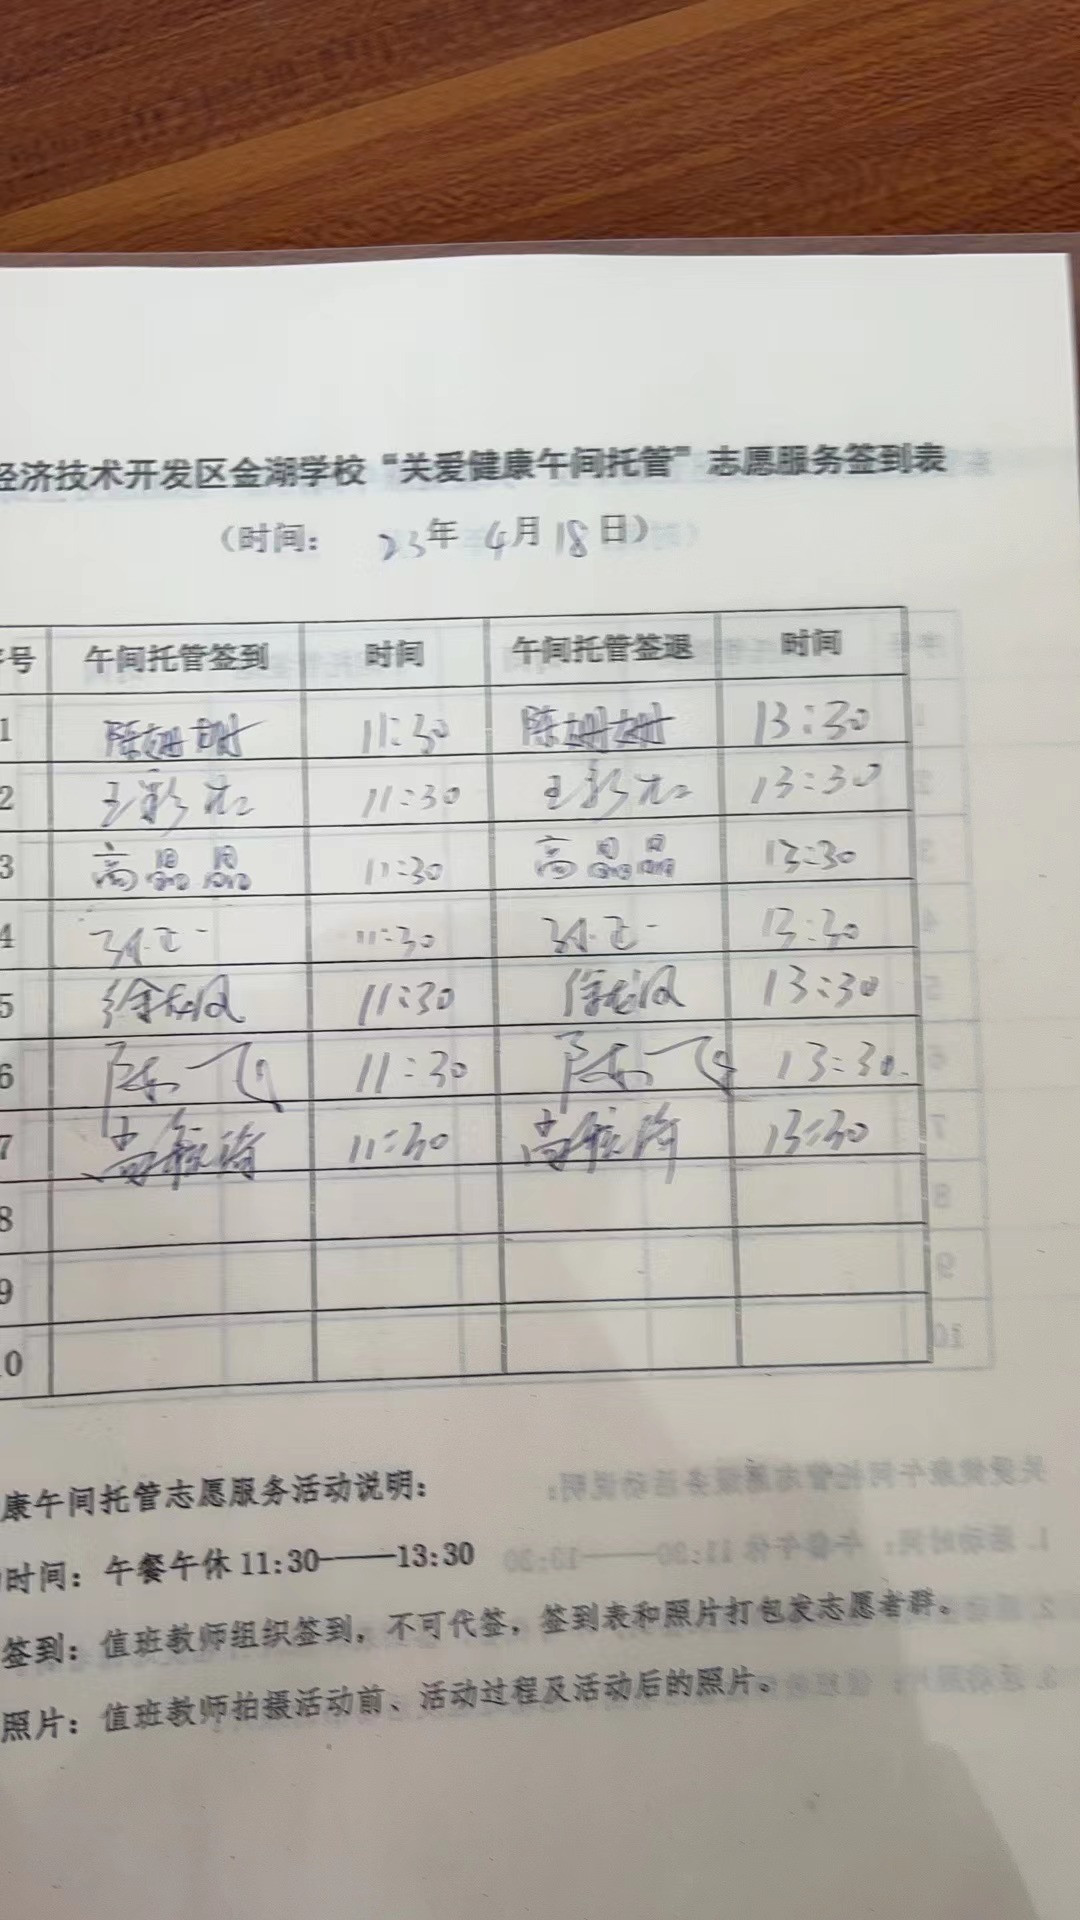 经济技术开发区金湖学校“关爱健康午间托管”志愿服务签到表
（时间： 23年 4月 18日）
序号 午间托管签到 时间 午间托管签退 时间
1 陈姗姗 11:30 陈姗姗 13:30
2 王彩 11:30 王彩 13:30
3 高晶晶 11:30 高晶晶 13:30
4 孙正一 11:30 孙正一 13:30
5 徐龙凤 11:30 徐龙凤 13:30
6 陈飞 11:30 陈飞 13:30
7 11:30 13:30
8
9
10
康午间托管志愿服务活动说明：
时间：午餐午休11:30——13:30
签到：值班教师组织签到，不可代签，签到表和照片打包发志愿者群。
照片：值班教师拍摄活动前、活动过程及活动后的照片。